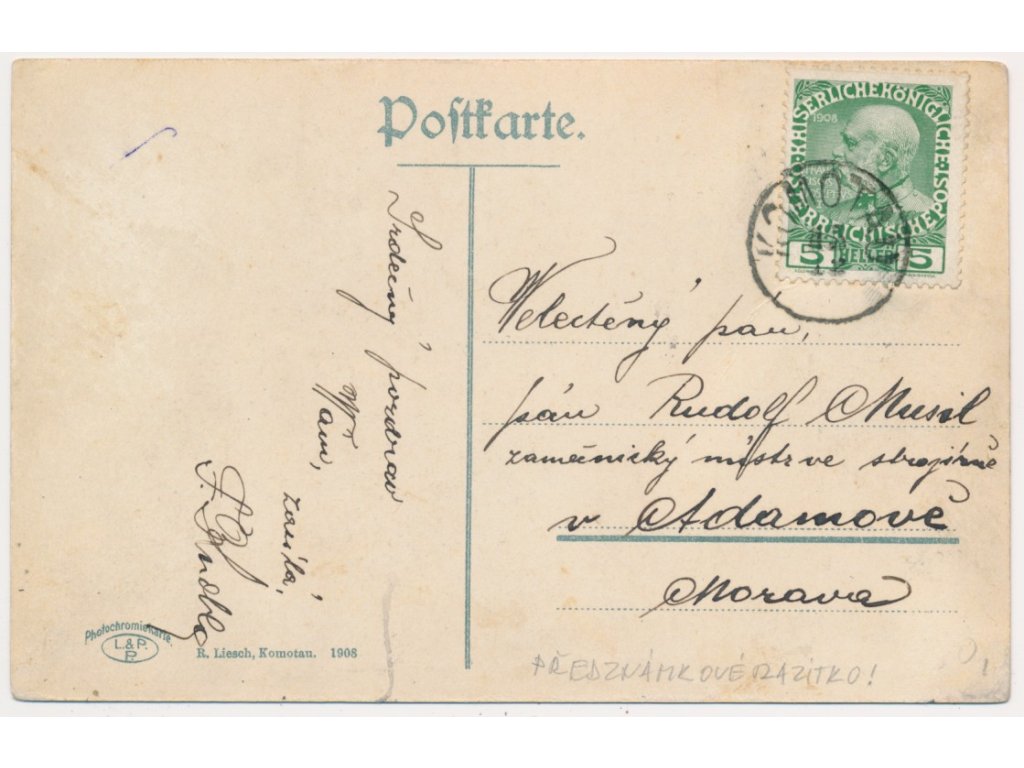 Postkarte.
KAISERLICHE KÖNIGLICHE ÖSTERREICHISCHE POST
1908
5 HELLER 5
KOMOTAU
Srdečný pozdrav
Vám,
zasílá,
Velectěný pan,
pán Rudolf Musil
zámečnický mistr ve strojírně
v Adamově
Morava
Photochromiekarte.
L.&P.
P.
R. Liesch, Komotan. 1908
PŘEDZNÁMKOVÉ RAZÍTKO!